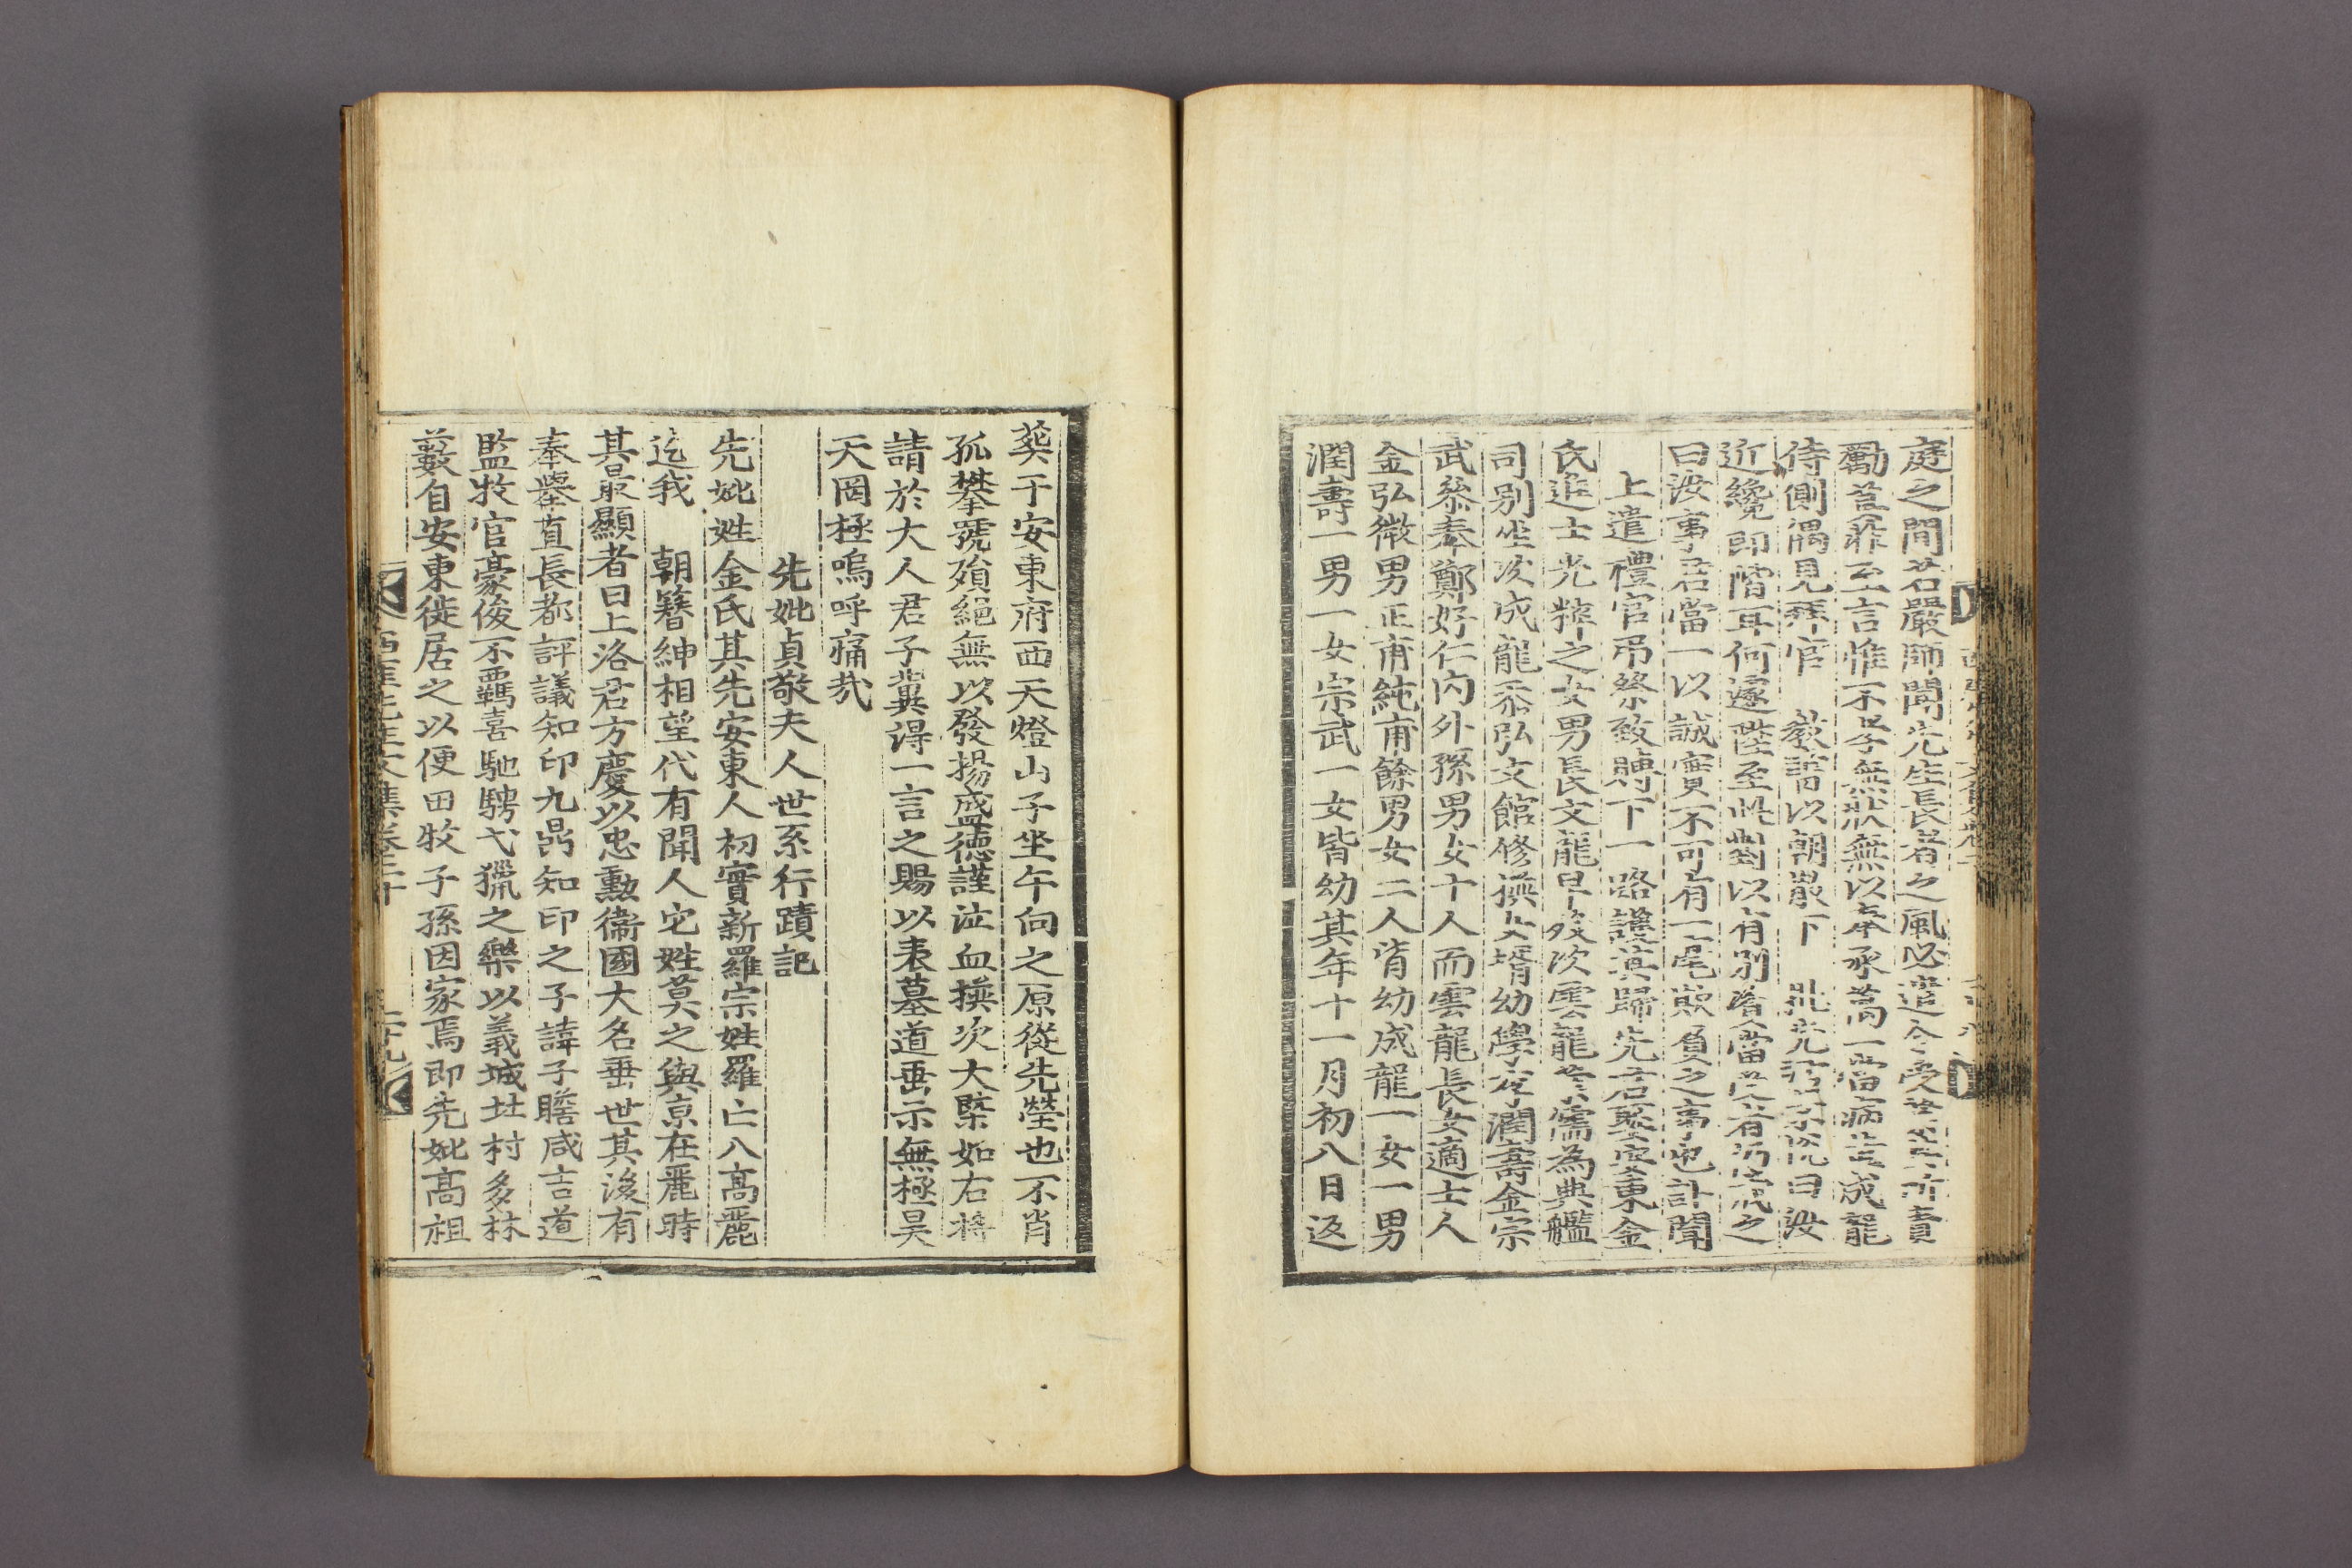 庭之間若嚴師聞先生長者之風必遣令受業其所責
勵其非至言惟不孝無狀無以奉承萬一當病時成龍
侍側偶見拜官 教諭以朝嚴下 批先君曰汝
近纔卽階耳何遽陞至此對以有別
曰汝事君當一以誠實不可有一毫欺負之事也訃聞
上遣禮官弔祭致賻下一路護葬歸先君娶安東金
氏進士光粹之女男長文龍早歿次雲龍業儒爲典艦
司別坐次成龍忝弘文館修撰女壻幼學李潤壽金宗
武叅奉鄭好仁內外孫男女十人而雲龍長女適士人
金弘微男正甫純甫餘男女二人皆幼成龍一女一男
潤壽一男一女宗武一女皆幼其年十一月初八日返
葬于安東府西天燈山子坐午向之原從先塋也不肖
孤攀號殞絕無以發揚盛德謹泣血撰次大槩如右將
請於大人君子冀得一言之賜以表墓道垂示無極昊
天罔極嗚呼痛㢤
先妣貞敬夫人世系行蹟記
先妣姓金氏其先安東人初實新羅宗姓羅亡入高麗
迄我 朝簪紳相望代有聞人它姓莫之與京在麗時
其最顯者曰上洛君方慶以忠勳衞國大名垂世其後有
奉擧直長都評議知印九鼎知印之子諱子瞻咸吉道
監牧官豪俊不羈喜馳騁弋獵之樂以義城㘰村多林
藪自安東徙居之以便田牧子孫因家焉卽先妣高祖
西厓先生文集卷二十 二十九